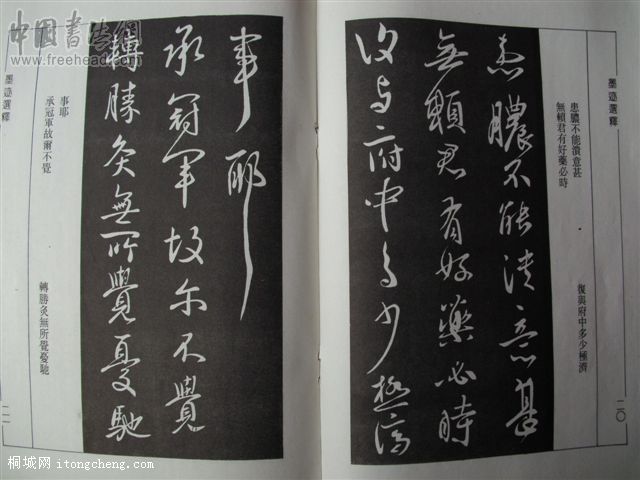 中国書法網
www.freehead.com
墨迹選釋
二〇
患膿不能潰意甚
無賴君有好藥必時
復與府中多少極濟
患膿不能潰意甚
無賴君有好藥必時
復與府中多少極濟
事耶
承冠軍故尔不覺
轉勝灸無所覺憂馳
事耶
承冠軍故爾不覺
轉勝灸無所覺憂馳
墨迹選釋
二一
桐城网 itongcheng.com